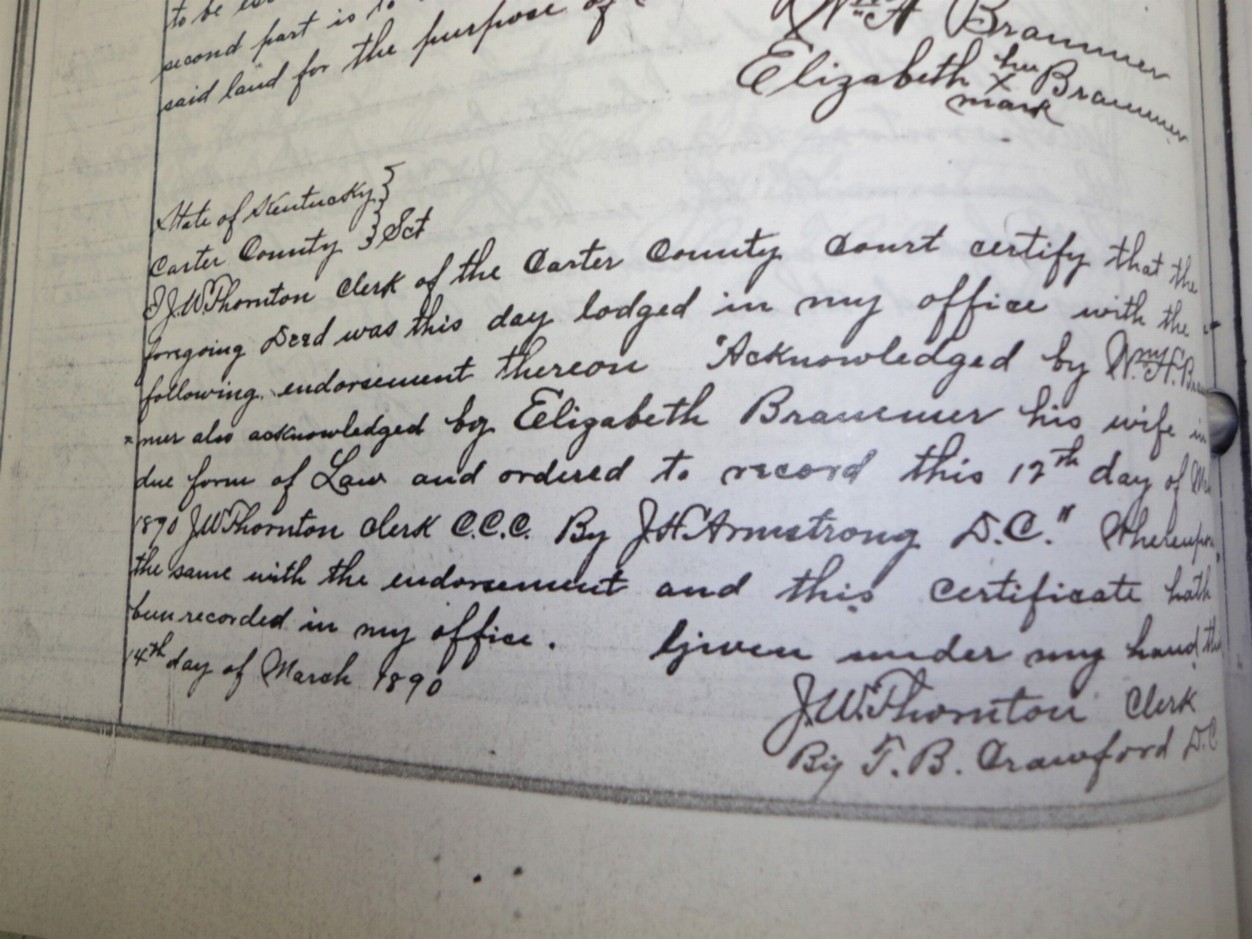 to be
second part is to
said land for the purpose of
Wm H Brammer
Elizabeth her x mark Brammer
State of Kentucky }
Carter County } Sct
I J.W. Thornton clerk of the Carter County Court certify that the
foregoing Deed was this day lodged in my office with the
following endorsement thereon "Acknowledged by Wm H. Bra
mer also acknowledged by Elizabeth Brammer his wife in
due form of Law and ordered to record this 12th day of
1890 J.W. Thornton clerk C.C.C. By J.H. Armstrong D.C." Whereupon
the same with the endorsement and this certificate hath
been recorded in my office. Given under my hand this
14th day of March 1890
J.W. Thornton Clerk
By T.B. Crawford D.C